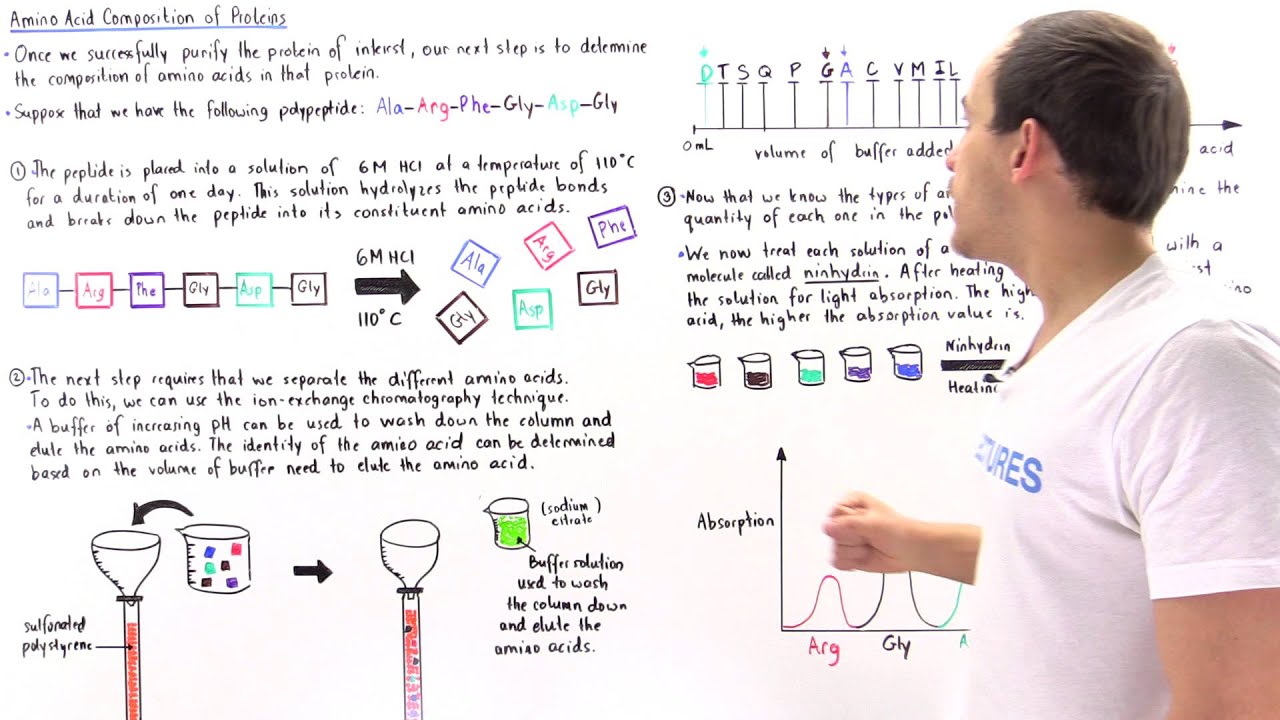 Amino Acid Composition of Proteins
• Once we successfully purify the protein of interest, our next step is to determine
the composition of amino acids in that protein.
• Suppose that we have the following polypeptide: Ala-Arg-Phe-Gly-Asp-Gly
① The peptide is placed into a solution of 6M HCl at a temperature of 110°C
for a duration of one day. This solution hydrolyzes the peptide bonds
and breaks down the peptide into its constituent amino acids.
Ala Arg Phe Gly Asp Gly
6M HCl
110°C
Ala Arg Phe
Gly Asp Gly
② • The next step requires that we separate the different amino acids.
To do this, we can use the ion-exchange chromatography technique.
• A buffer of increasing pH can be used to wash down the column and
elute the amino acids. The identity of the amino acid can be determined
based on the volume of buffer need to elute the amino acid.
sulfonated
polystyrene
(sodium)
citrate
Buffer solution
used to wash
the column down
and elute the
amino acids.
D T S Q P G A C V M I L
0mL
volume of buffer added
acid
③ • Now that we know the types of
quantity of each one in the
the
• We now treat each solution of a with a
molecule called ninhydrin. After heating
the solution for light absorption. The
acid, the higher the absorption value is.
Ninhydrin
Absorption
Arg Gly A
TURES